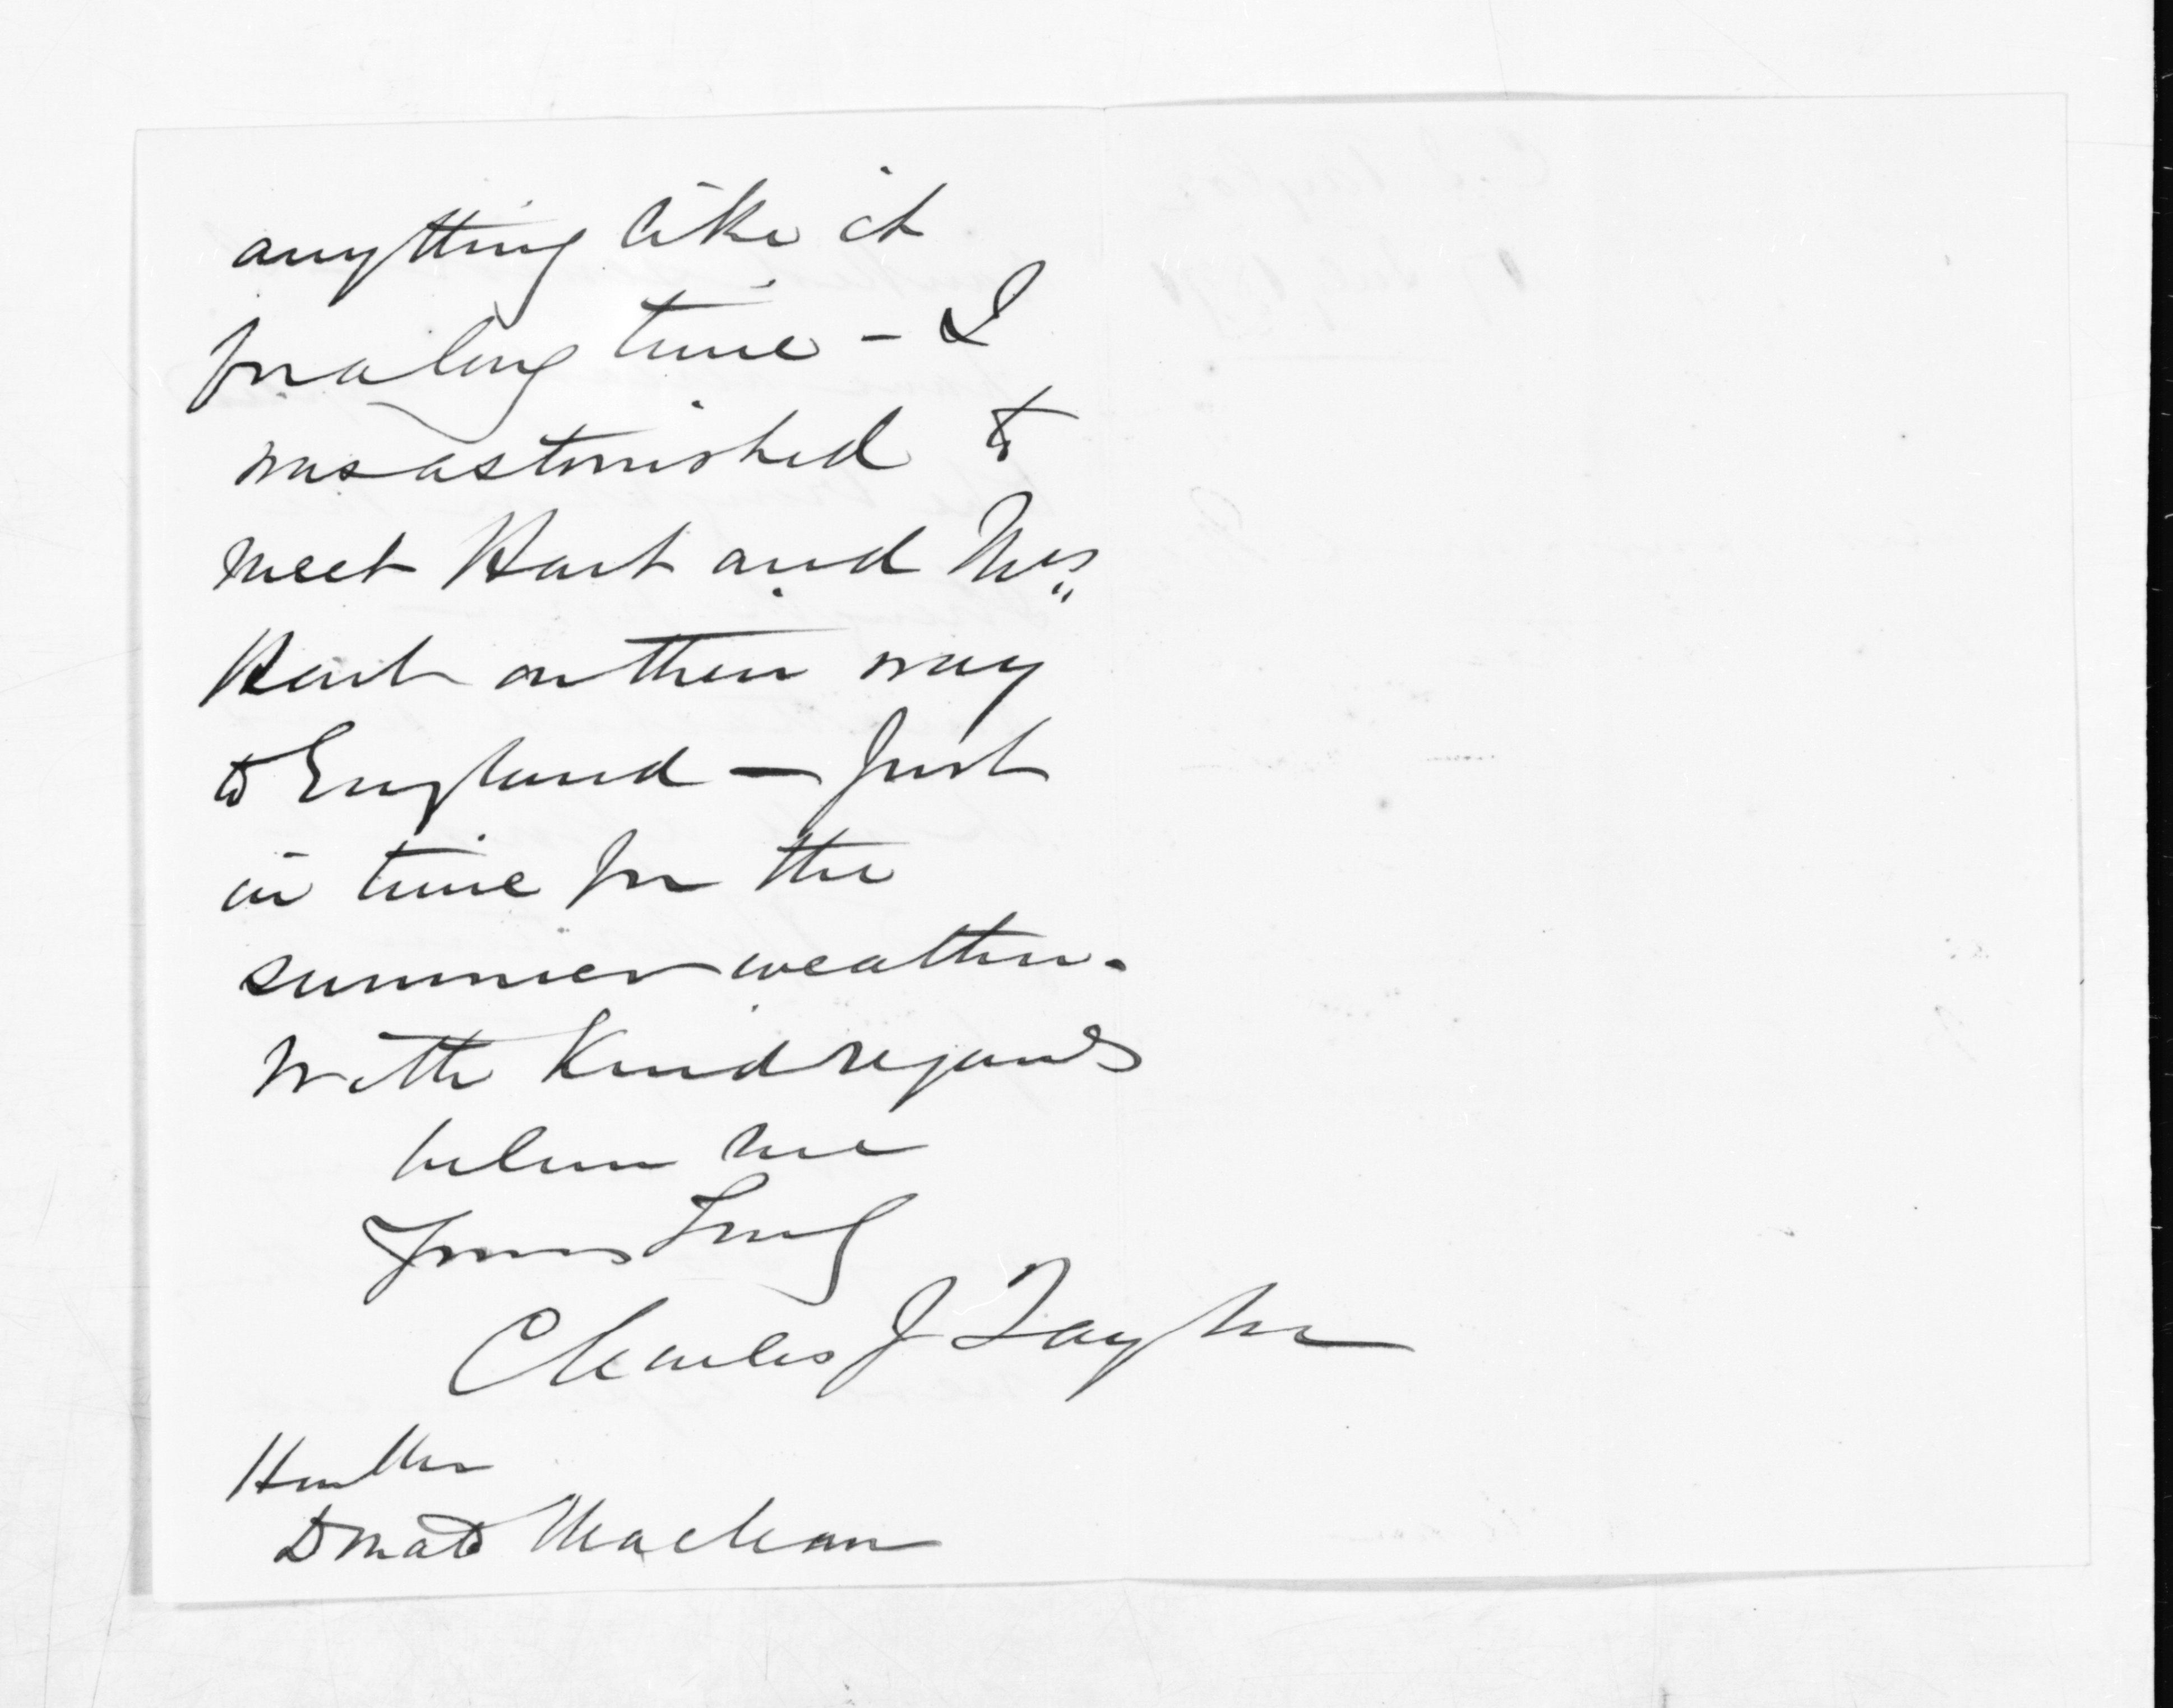 anything like it
for a long time - I
was astonished to
meet Hart and Mrs
Hart on their way
to England - Just
in time for the
summer weather.
With Kind regards
believe me
Yours Truly
Charles J Taylor
Honble
Donald MacLean